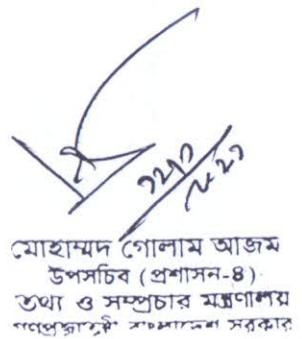 মোহাম্মদ গোলাম আজম
উপসচিব (প্রশাসন-৪)
তথ্য ও সম্প্রচার মন্ত্রণালয়
গণপ্রজাতন্ত্রী বাংলাদেশ সরকার